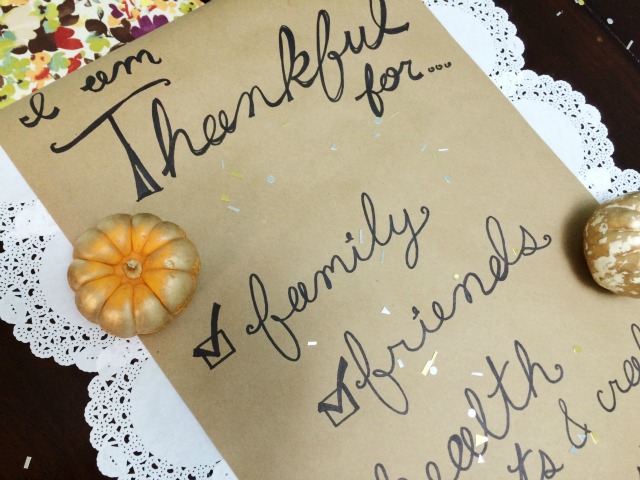 I am
Thankful
for...
family
friends
health
&